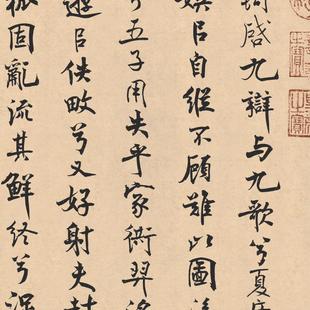 啓九辯与九歌兮夏康
娱㠯自縱不顧難㠯圖
五子用失乎家衖羿淫
遊㠯佚畋兮又好射夫封
固亂流其鮮終兮浞